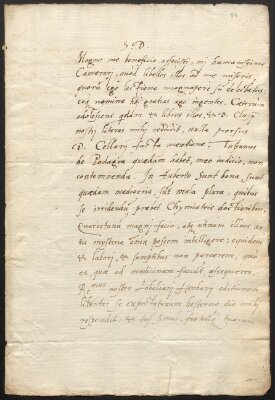 S. D.
Magno me beneficio affecisti, mi humanissime
Camerari, quod libellos illos ad me miseris,
quorum ego lectione magnopere sum delectatus.
eoq nomine tibi gratias ago ingentes. Ceterum
adolescens quidam et libros illos, et D. Clusij
nostri literas mihi reddidit, nulla prorsus
D. Cellarij facta mentione. Tufanus
de Podagra quædam habet, meo iudicio, non
contemnenda. In Auberto sunt bona, sunt
quædam mediocria, sunt mala plura, quibus
se irridendum præbet Chymiatris doctioribus.
Quercetanum magni facio, atq utinam illius ar
tis mysteria omnia possem intellegere; equidem
et labori, et sumptibus non parcerem, quo
ea, quæ ad medicinam faciunt, assequerer.
nus noster Lobelianam Herbarij editionem
libenter se expectaturum hesterno die mihi
respondit: et